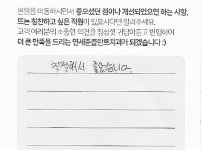 본원을 이용하시면서 좋으셨던 점이나 개선되었으면 하는 사항,
또는 칭찬하고 싶은 직원이 있으시다면 알려주세요.
고객 여러분의 소중한 의견을 정성껏 귀담아듣고 반영하여
더 큰 만족을 드리는 연세존플란트치과가 되겠습니다 :)
친절해서 좋았습니다.